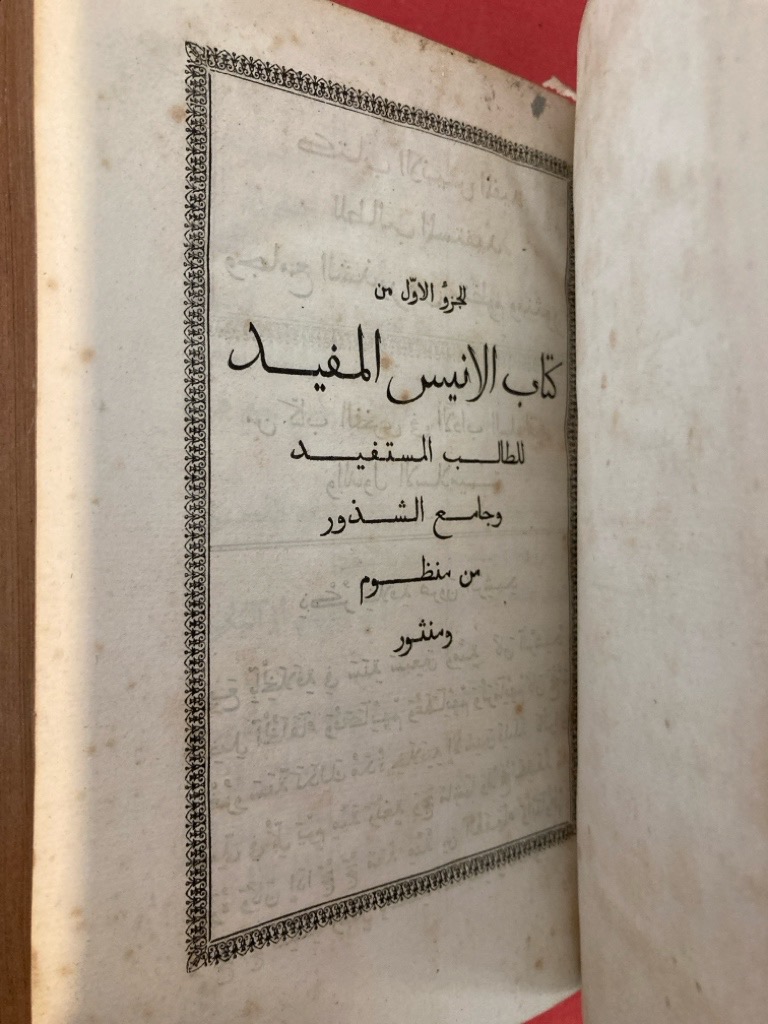 الجزؤ الاوّل من
كتاب الانيس المفيد
للطالب المستفيد
وجامع الشذور
من منظوم
ومنثور